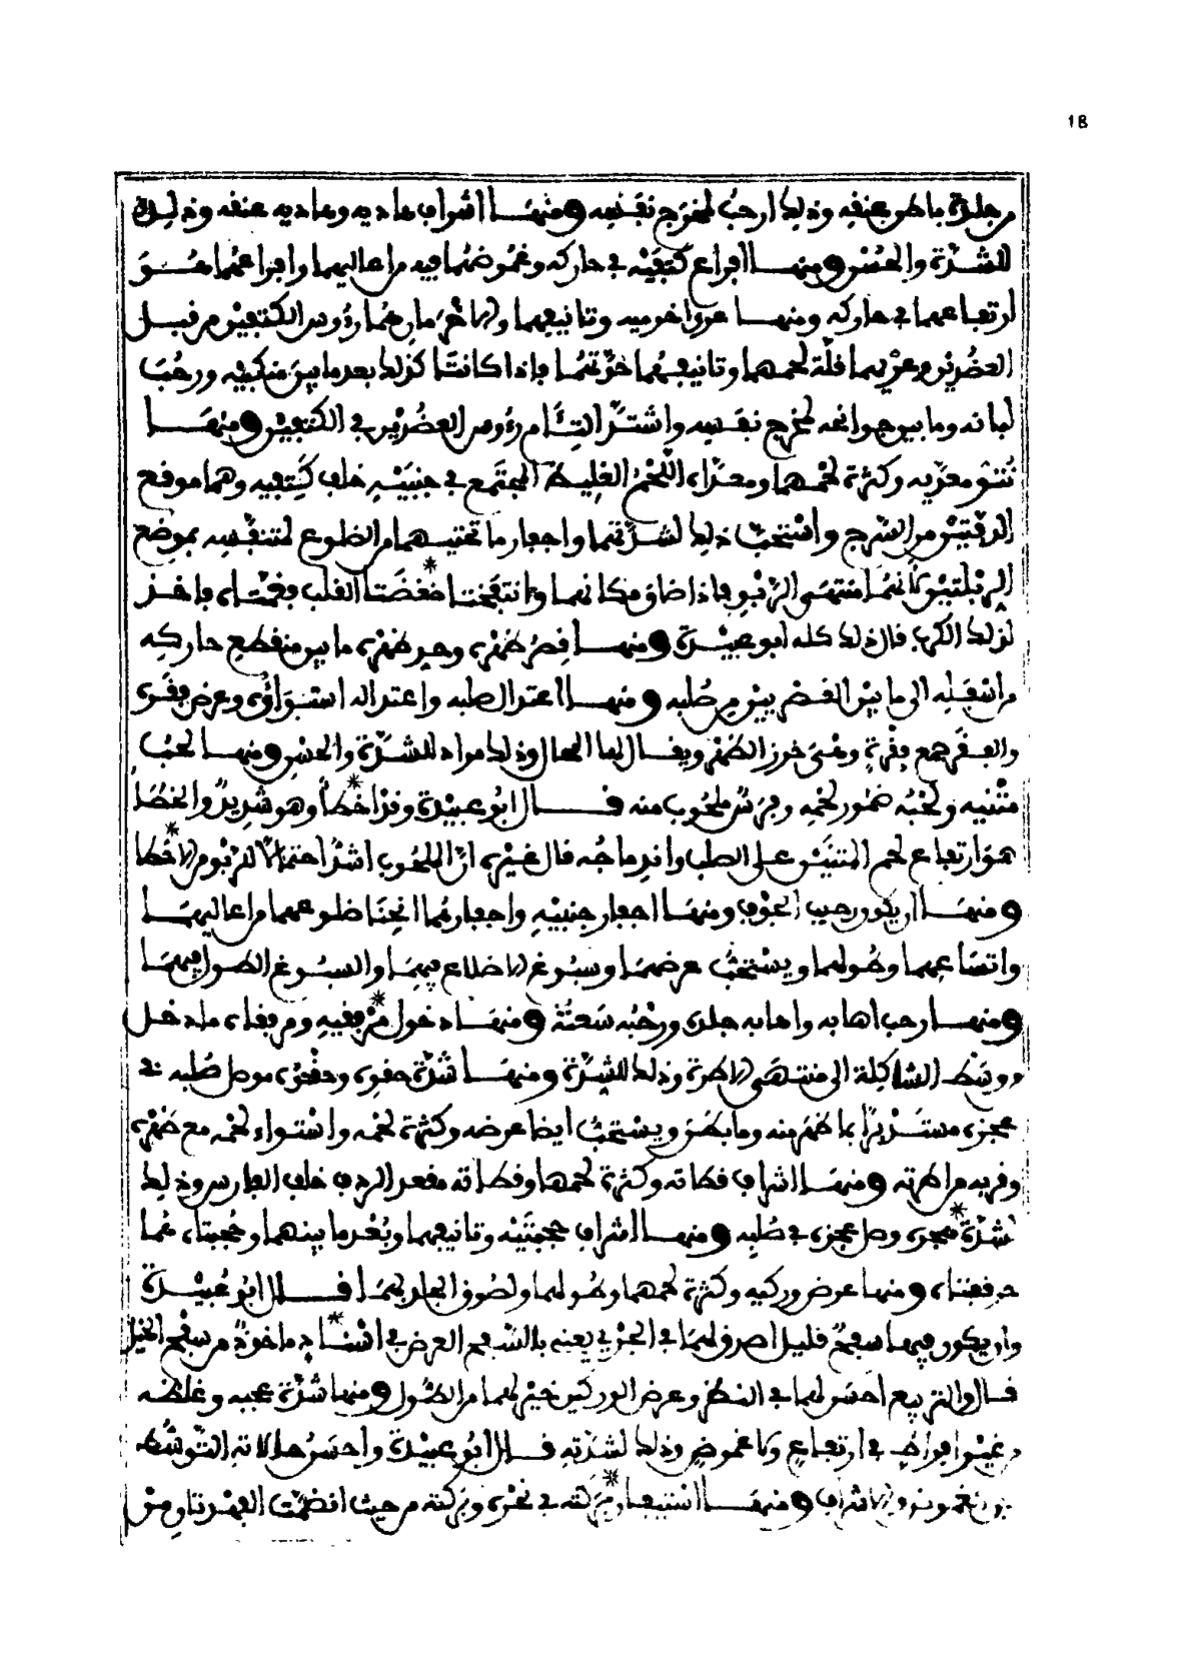 18
من جلدة باطن عنقه وذلك ارحب لمخرج نفسه ومنها اشراف هاديه وهاديه عنقه وذلك
للشدة والحسن ومنها افراع كتفيه في حاركه وغموضهما فيه من اعاليهما وافراعهما هو
ارتفاعهما في حاركه ومنها عرى اخرميه وتانيفهما والاخرمان هما رؤوس الكتفين من قبل
العضدين وعريهما قلة لحمهما وتانيفهما حدتهما فاذا كانتا كذلك بعد ما بين منكبيه ورحب
لبانه وما بين جوانحه لمخرج نفسه واشتد التئام رؤوس العضدين في الكتفين ومنها
نتو معديه وكثرة لحمهما ومعداه اللحم الغليظ المجتمع في جنبيه خلف كتفيه وهما موقع
الدفتين من السرج واستحب ذلك لشدتهما واجفار ما تحتهما من الضلوع لمتنفسه بموضع
الربلتين لانهما منتهى الربو فاذا ضاق مكانهما وانتفختا ضغضتا القلب فغمتاه فاخذ
لذلك الكرب قال ذلك كله ابو عبيدة ومنها قصر ظهره وحد ظهره ما بين منقطع حاركه
من اسفله الى ما بين القصريين من صلبه ومنها اعتدال صلبه واعتداله استواؤه وعرض فقره
والفقر جمع فقرة وهي خرز الظهر ويقال لها المحال وذلك مراد للشدة والحسن ومنها لحب
متنيه ولحبه ضمور لحمه وفرس ملحوب منه قال ابو عبيدة ونزا خظا وهو شديد والخظا
هو ارتفاع لحم المتنين على الصلب واندماجه قال غيره ان اللحوب اشد احتمالا للربو من الاخظا
ومنها ان يكون رحيب الجوف ومنها اجفار جنبيه واجفارهما انحنا ضلوعهما من اعاليهما
واتساعهما وطولهما ويستحب عرضهما وسبوغ الاضلاع فيهما والسبوغ الطول فيهما
ومنها رحب اهابه واهابه جلده ورحبه سعته ومنها دخول مرفقيه ومرفقاه ما دخل
من وسط الشاكلة الى منتهى الاطرة وذلك للشدة ومنها شدة حقوه وحقوه موصل صلبه في
عجزه مستديرا بما ظهر منه وما بطن ويستحب ايضا عرضه وكثرة لحمه واستواء لحمه مع ظهره
وقربه من اطرته ومنها اشراف قطاته وكثرة لحمها وقطاته مقعد الردف خلف الفارس وذلك
شدة عجزه وصل عجزه في صلبه ومنها اشراف حجبتيه وتانيفهما وبعد ما بينهما وحجبتاه هما
حرقفتاه ومنها عرض وركيه وكثرة لحمهما وطولهما ولصوق الجلد بهما قال ابو عبيدة
وان يكون فيهما سفح قليل اصرف لهما في الجري يعنى بالسفح العرض في استناد ماخوذ من سفح الجبل
قال والتربيع احسن لهما في النظر وعرض الوركين خير لهما من الطول ومنها شدة عجبه وغلظه
من غير افراط في ارتفاع ولا غموض وذلك لشدته قال ابو عبيدة واحسن حالاته التوسط
بين الغموض والاشراف ومنها استيعار بركته في نحره وبركته من حيث انضمت الفهدتان من